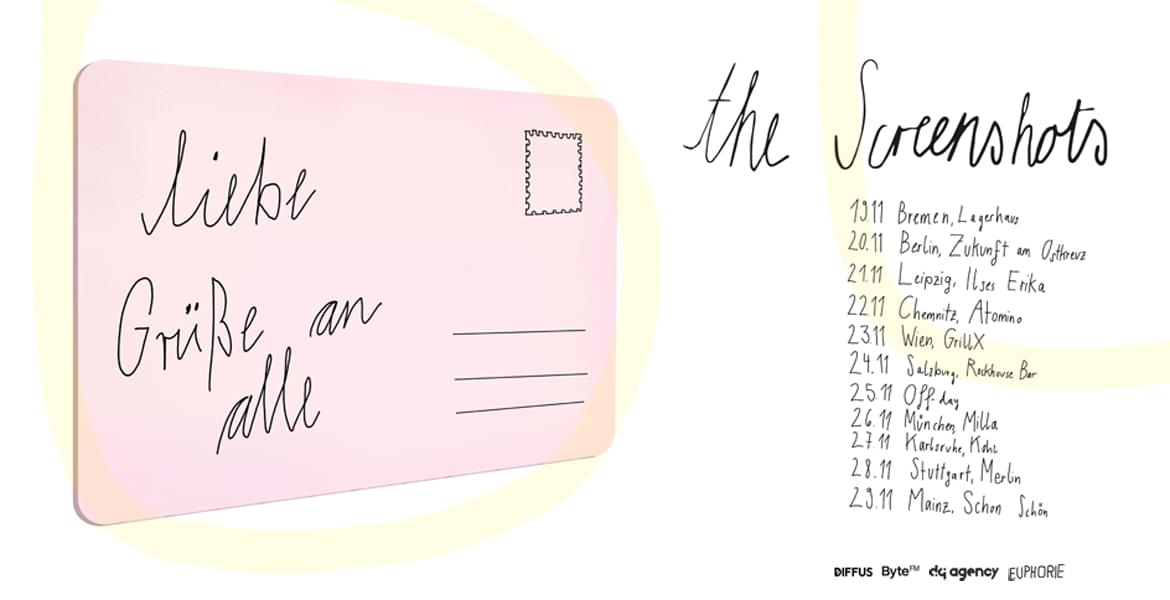 liebe
Grüße an
alle
the Screenshots
19.11 Bremen, Lagerhaus
20.11 Berlin, Zukunft am Ostkreuz
21.11 Leipzig, Ilses Erika
22.11 Chemnitz, Atomino
23.11 Wien, GrillX
24.11 Salzburg, Rockhouse Bar
25.11 Off day
26.11 München, Milla
27.11 Karlsruhe, Kohi
28.11 Stuttgart, Merlin
29.11 Mainz, Schon Schön
DIFFUS ByteFM dq agency EUPHORIE